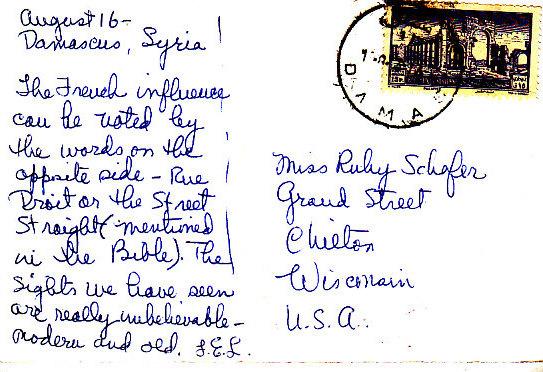 August 16-
Damascus, Syria
The French influence
can be noted by
the words on the
opposite side - Rue
Droit or the Street
Straight (mentioned
in the Bible). The
sights we have seen
are really unbelievable -
modern and old. L.E.L.
Miss Ruby Schafer
Grand Street
Chilton
Wisconsin
U.S.A.
DAMAS